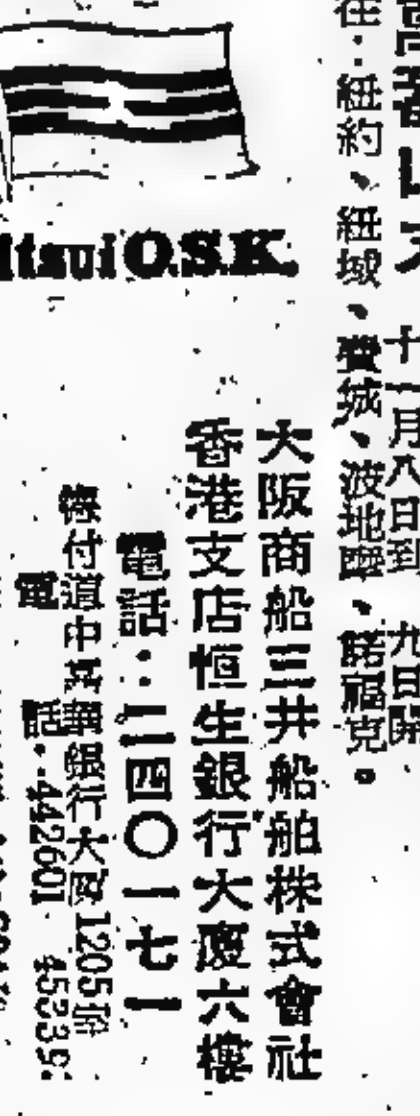 十一月八日到 九日開
紐約、紐域、費城、波地、諾福克。
O.S.K.
大阪商船三井船舶株式會社
香港支店恒生銀行大廈六樓
電話：二四〇一七一
德付道中華銀行大廈1205號
電話：442601